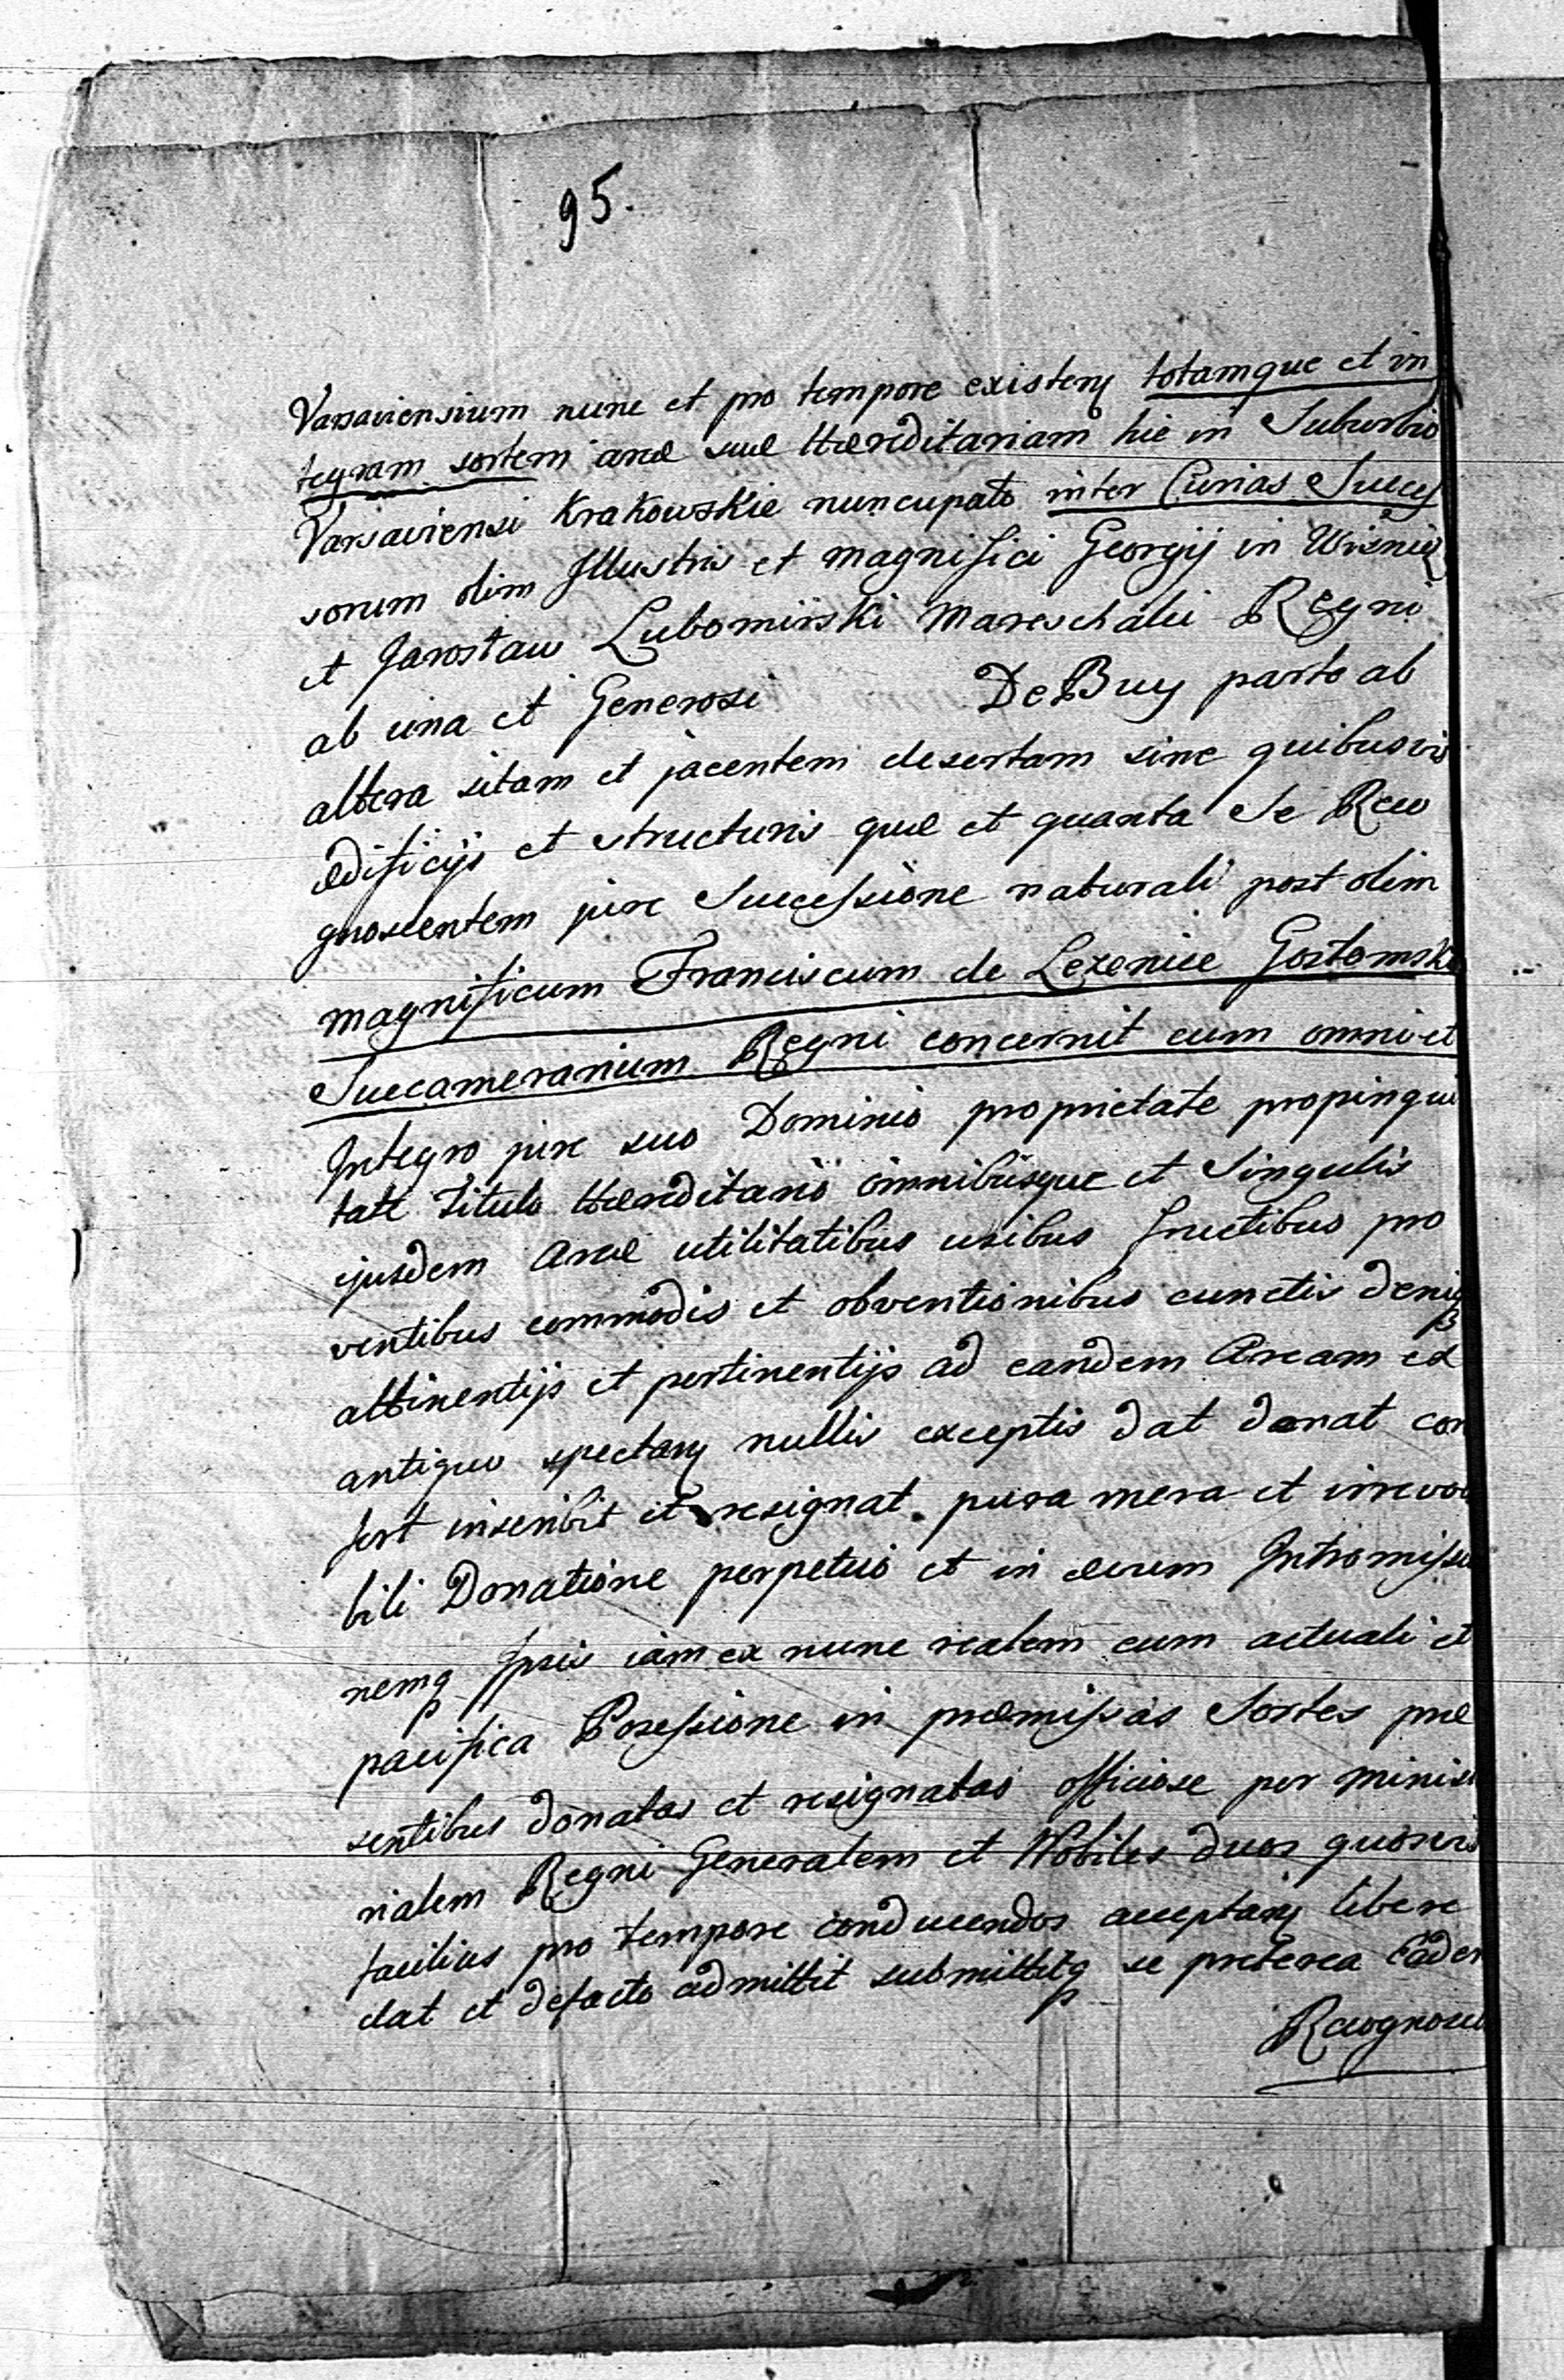 95.
Varsaviensium nunc et pro tempore existen totamque et in
tegram sortem areæ suæ Hæreditariam hic in Suburbio
Varsaviensi Krakowskie nuncupato inter Curias Succes
sorum olim Illustris et magnifici Georgij in Wisnicz
et Jarosław Lubomirski Mareschalci Regni
ab una et Generosi De Buy parte ab
altera sitam et jacentem desertam sine quibusvis
ædificijs et structuris quæ et quanta Se Reco
gnoscentem jure Successione naturali post olim
magnificum Franciscum de Lezenice Gostomski
Succamerarium Regni concernit cum omni et
Integro jure suo Dominio proprietate propinqui
tate Titulo Hæreditario omnibusque et Singulis
ejusdem Areæ utilitatibus usibus fructibus pro
ventibus commodis et obventionibus cunctis deniq
attinentijs et pertinentijs ad eandem Aream ex
antiquo spectan nullis exceptis dat donat con
fert inscribit et resignat. pura mera et irrevoca
bili Donatione perpetuo et in ævum Intromissio
nemq Ipsis iam ex nunc realem cum actuali et
pacifica Posessione in præmissas Sortes præ
sentibus donatas et resignatas officiose per Ministe
rialem Regni Generalem et Nobiles duos quosvis
facilius pro tempore conducendos acceptan libere
dat et defacto admittit submittitq se preterea Eadem
Recognosce